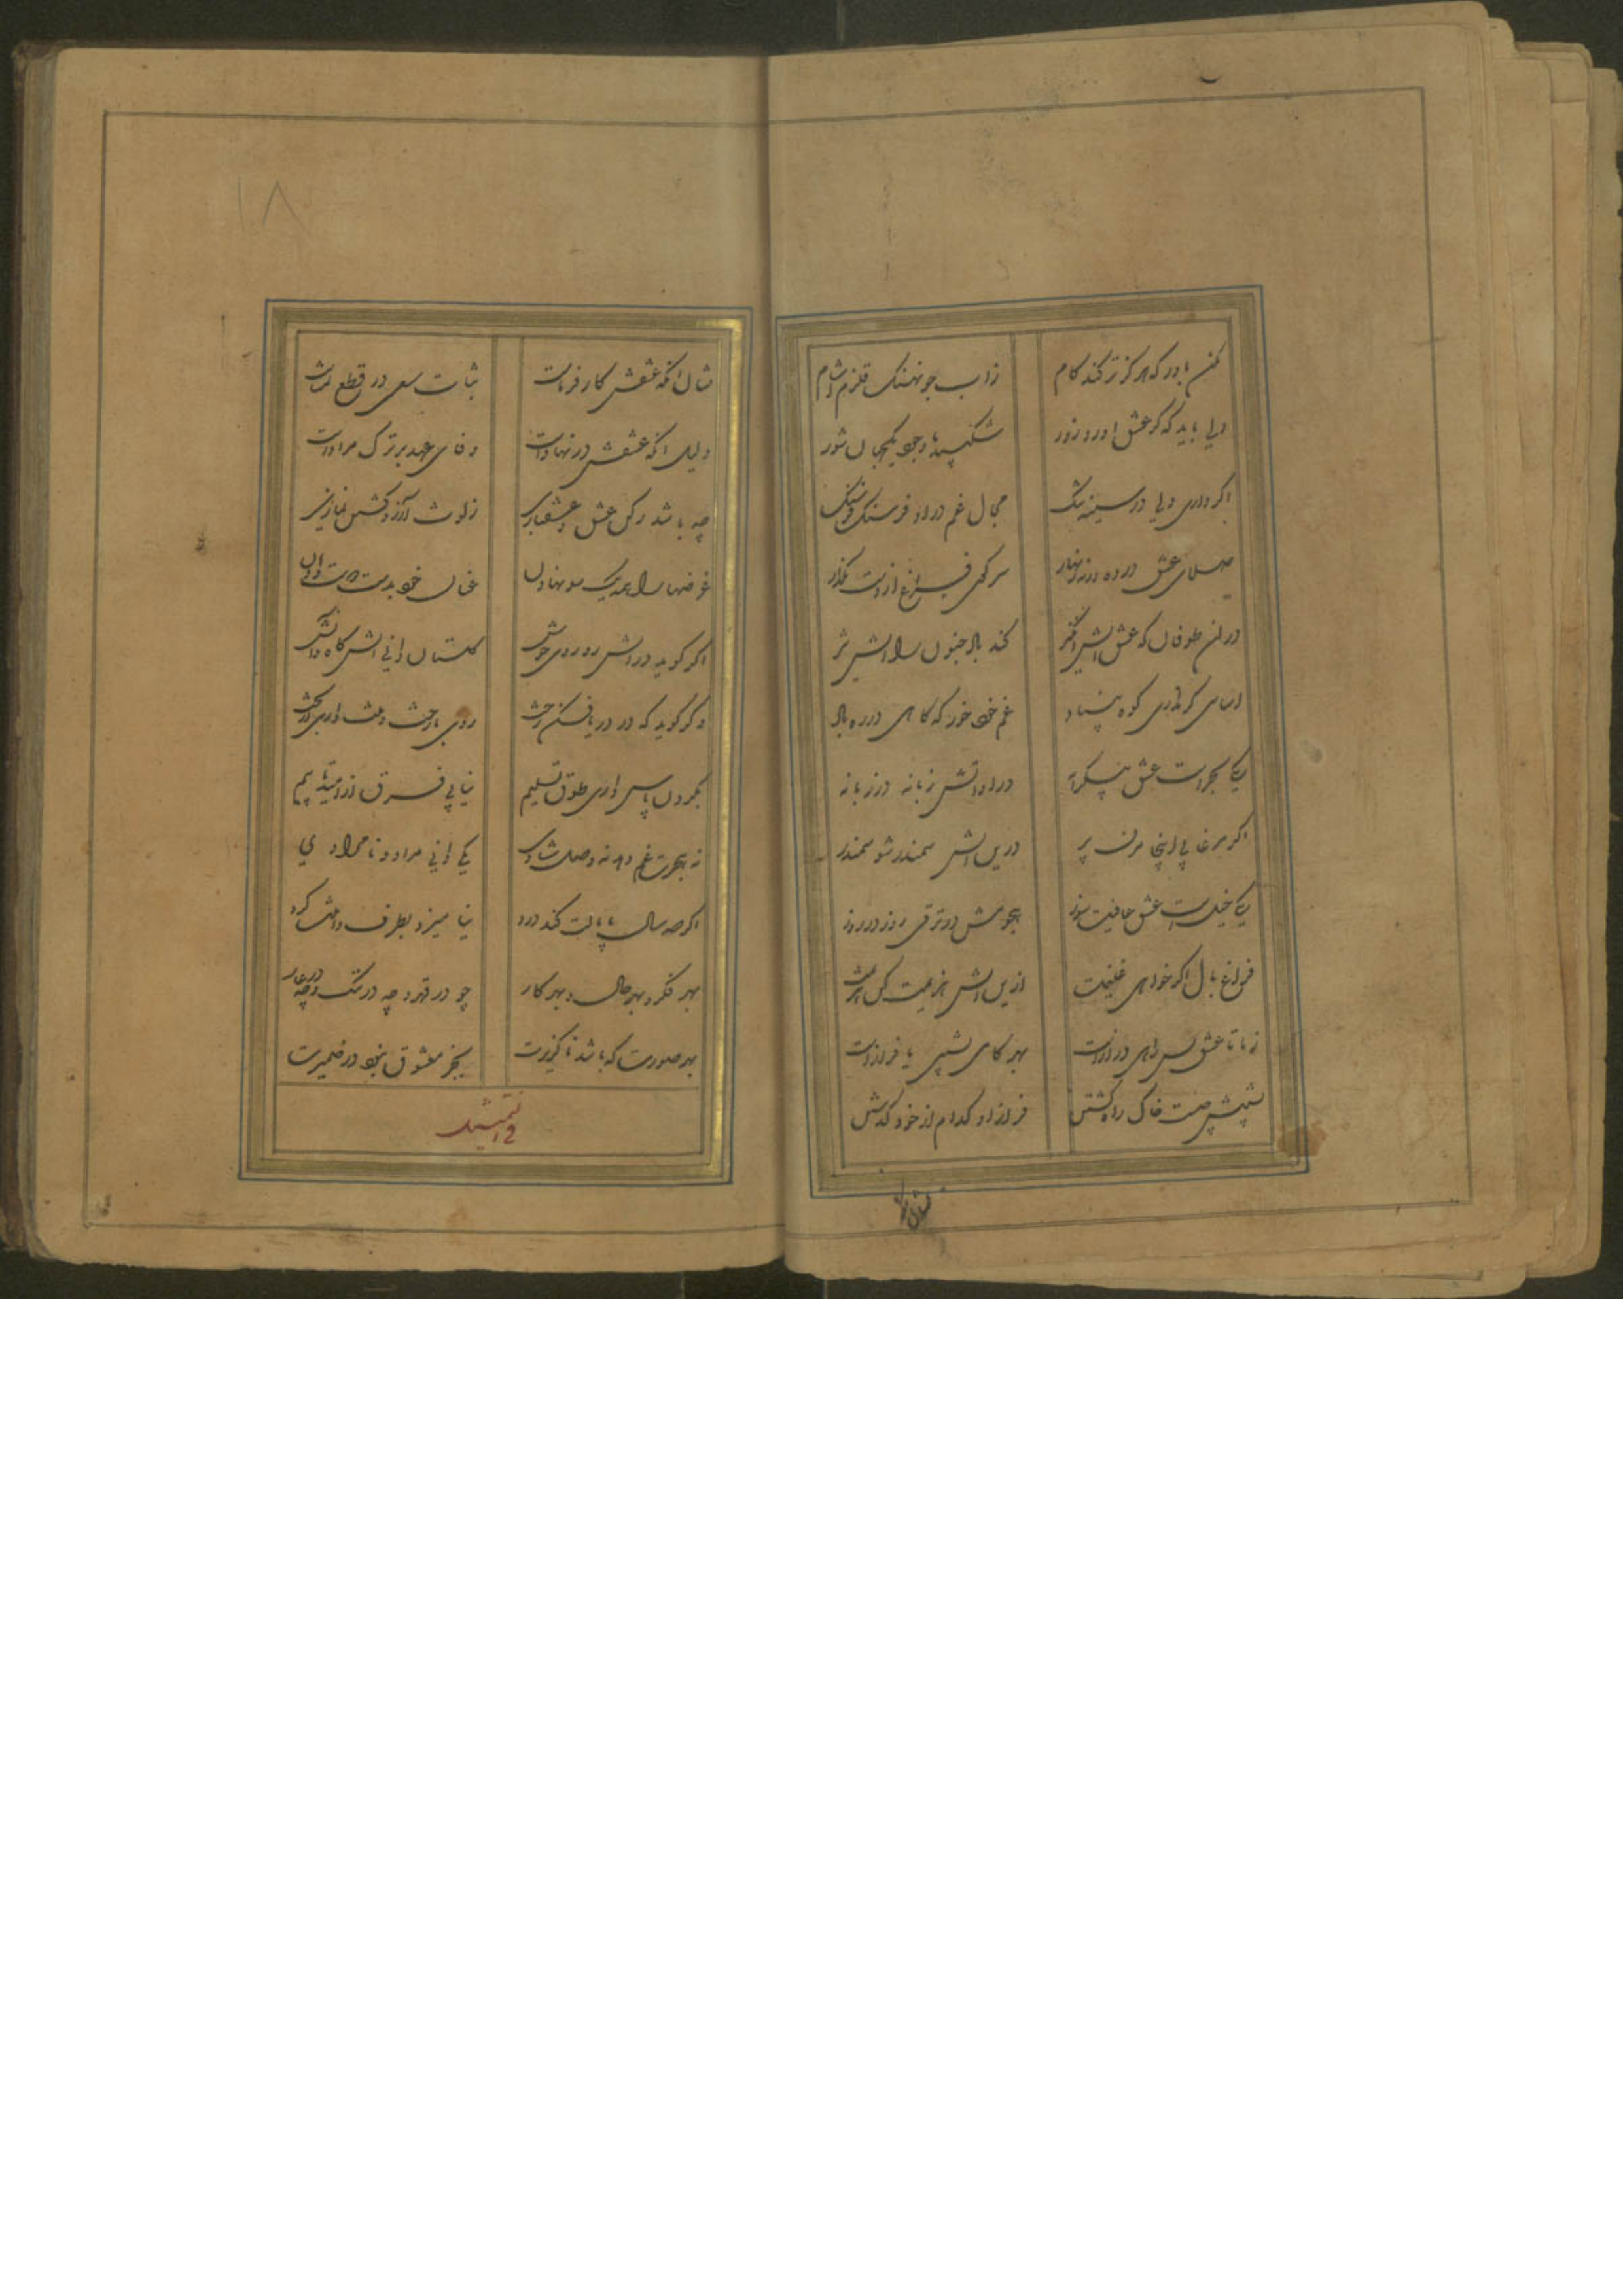 مکن باور که هرگز تر کند کام
زاب جو نهنک قلزم آشام
دلی باید که کر عشق اورد زور
شکیبد با وجود یکجهان شور
اکر داری دلی در سینه تنک
مجال غم در او فرسنک فرسنک
صلای عشق درده ورنه زنهار
سر کوی فراغ از دست مکذار
در ان طوفان که عشق اتش انکیز
کند باد جنون را اتش تیز
اساسی کر نداری کوه بنیاد
غم خود خور که کاهی در ره باد
یکی بحراست عشق بیکرانه
در او اتش زبانه در زبانه
اکر مرغابی اینجا مزن پر
درین اتش سمندر شو سمندر
یکی خیلست عشق عافیت سوز
هجومش در ترقی روز در روز
فراغ بال اکر خواهی غنیمت
ازین اتش هزیمت کن هزیمت
زما تا عشق بس راهی درازاست
بهر کامی نشیبی یا فرازاست
نشیبش چیست خاک راه کشتن
فراز او کدام از خود کذشتن
نشان انکه
١٨
نشان انکه عشقش کار فرماست
ثبات سعی در قطع تمناست
دلیل انکه عشقش در نهاداست
وفای عهد بر ترک مراداست
چه باشد رکن عشق و عشقبازی
زلوث آرزو کشتن نمازی
غرضها را همه یک سو نهادن
عنان خود بدست دوست دادن
اکر کوید در اتش رو روی خوش
کلستان دانی اتشکاه و اتش
وکر کوید که در دریا فکن رخت
روی با رخت و منت داری از بخت
بکردن پاس داری طوق تسلیم
نیابی فرق از امید تا بیم
نه هجرت غم دهد نه وصل شادی
یکی دانی مراد و نامرادی
اکر صد سال پامالت کند درد
نیامیزد بطرف دامنت کرد
بهر فکر و بهر حال و بهر کار
چو در قهر و چه در ننک و چه در عار
بهر صورت که باشد ناکزیرت
بجز معشوق نبود در ضمیرت
فی التمثیل